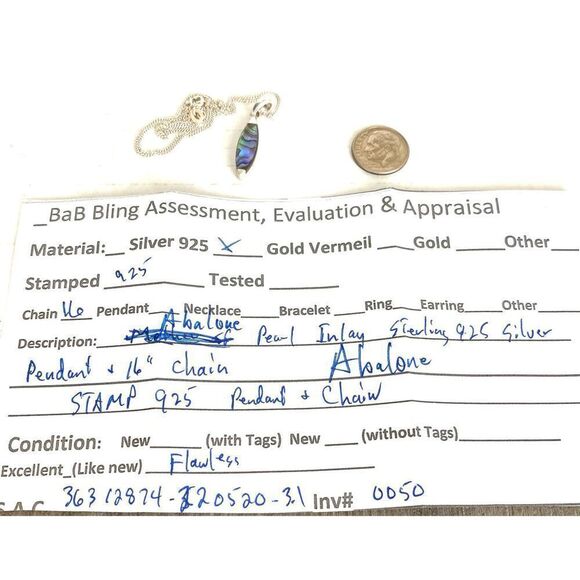 _BaB Bling Assessment, Evaluation & Appraisal
Material:__ Silver 925 X Gold Vermeil ___ Gold ____ Other
Stamped 925 Tested
Chain 16 Pendant___ Necklace____ Bracelet ____ Ring___ Earring____ Other
Abalone
Description: Pearl Inlay Sterling 925 Silver
Pendant + 16" Chain Abalone
STAMP 925 Pendant + Chain
Condition: New____ (with Tags) New ____ (without Tags)
Excellent_(Like new) Flawless
36312874- 220520-3.1 Inv# 0050